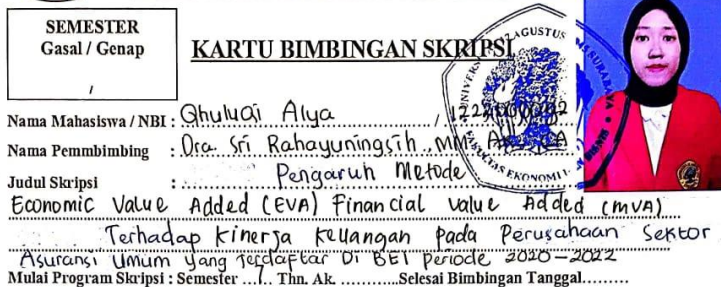 SEMESTER
Gasal / Genap
/
KARTU BIMBINGAN SKRIPSI
Nama Mahasiswa / NBI : Qhuluqi Alya /
Nama Pemmbimbing : Dra. Sri Rahayuningsih, MM,
Judul Skripsi : Pengaruh Metode
Economic Value Added (EVA) Financial Value Added (MVA)
Terhadap Kinerja Keuangan pada Perusahaan Sektor
Asuransi Umum yang Terdaftar Di BEI Periode 2020-2022
Mulai Program Skripsi : Semester ...7.. Thn. Ak. ............Selesai Bimbingan Tanggal.........
AGUSTUS
SURABAYA
FAKULTAS EKONOMI
BISNIS